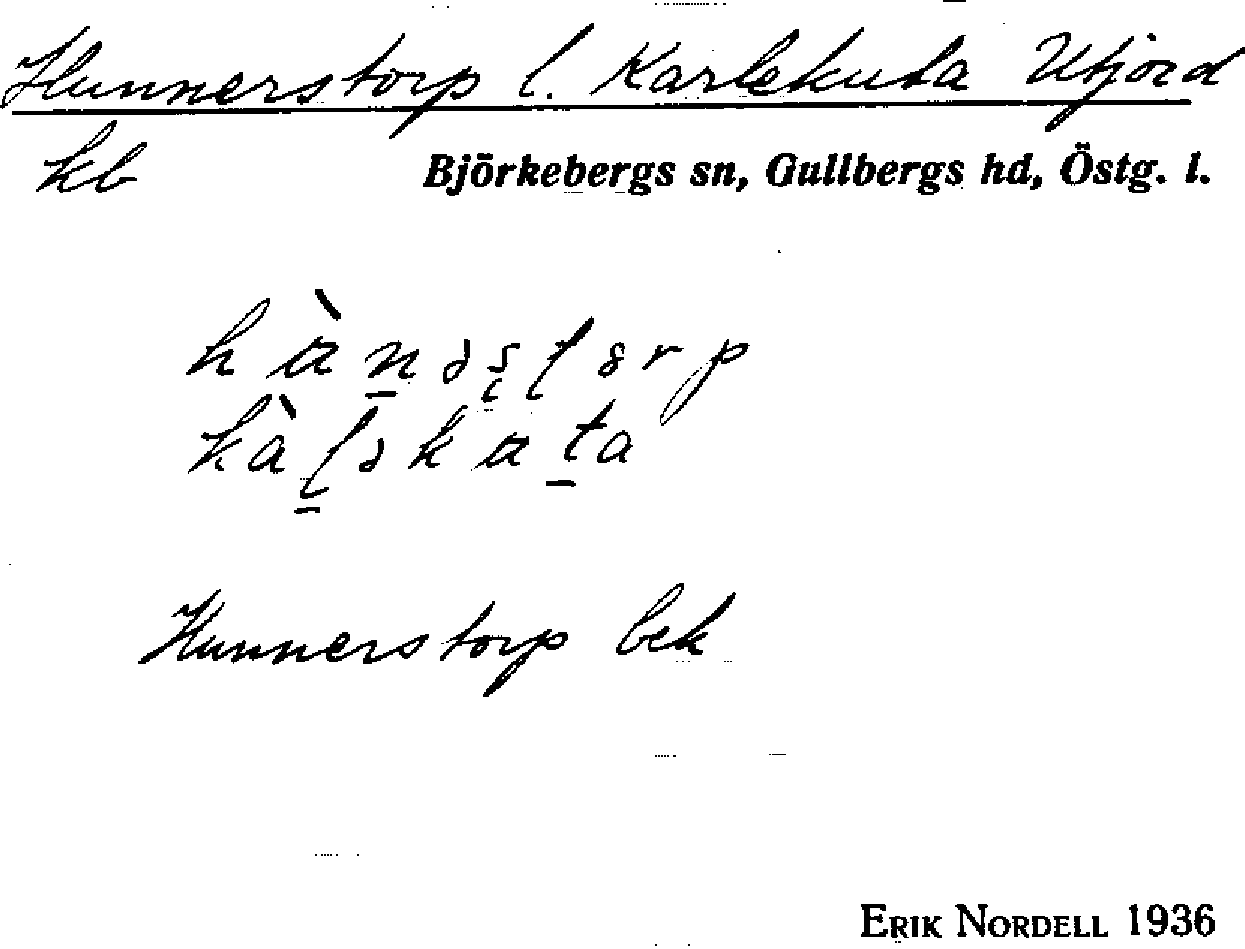 Hunnerstorp l. Karlekuta Utjord
kb
Björkebergs sn, Gullbergs hd, Östg. l.
Hunnerstorp bek
ERIK NORDELL 1936